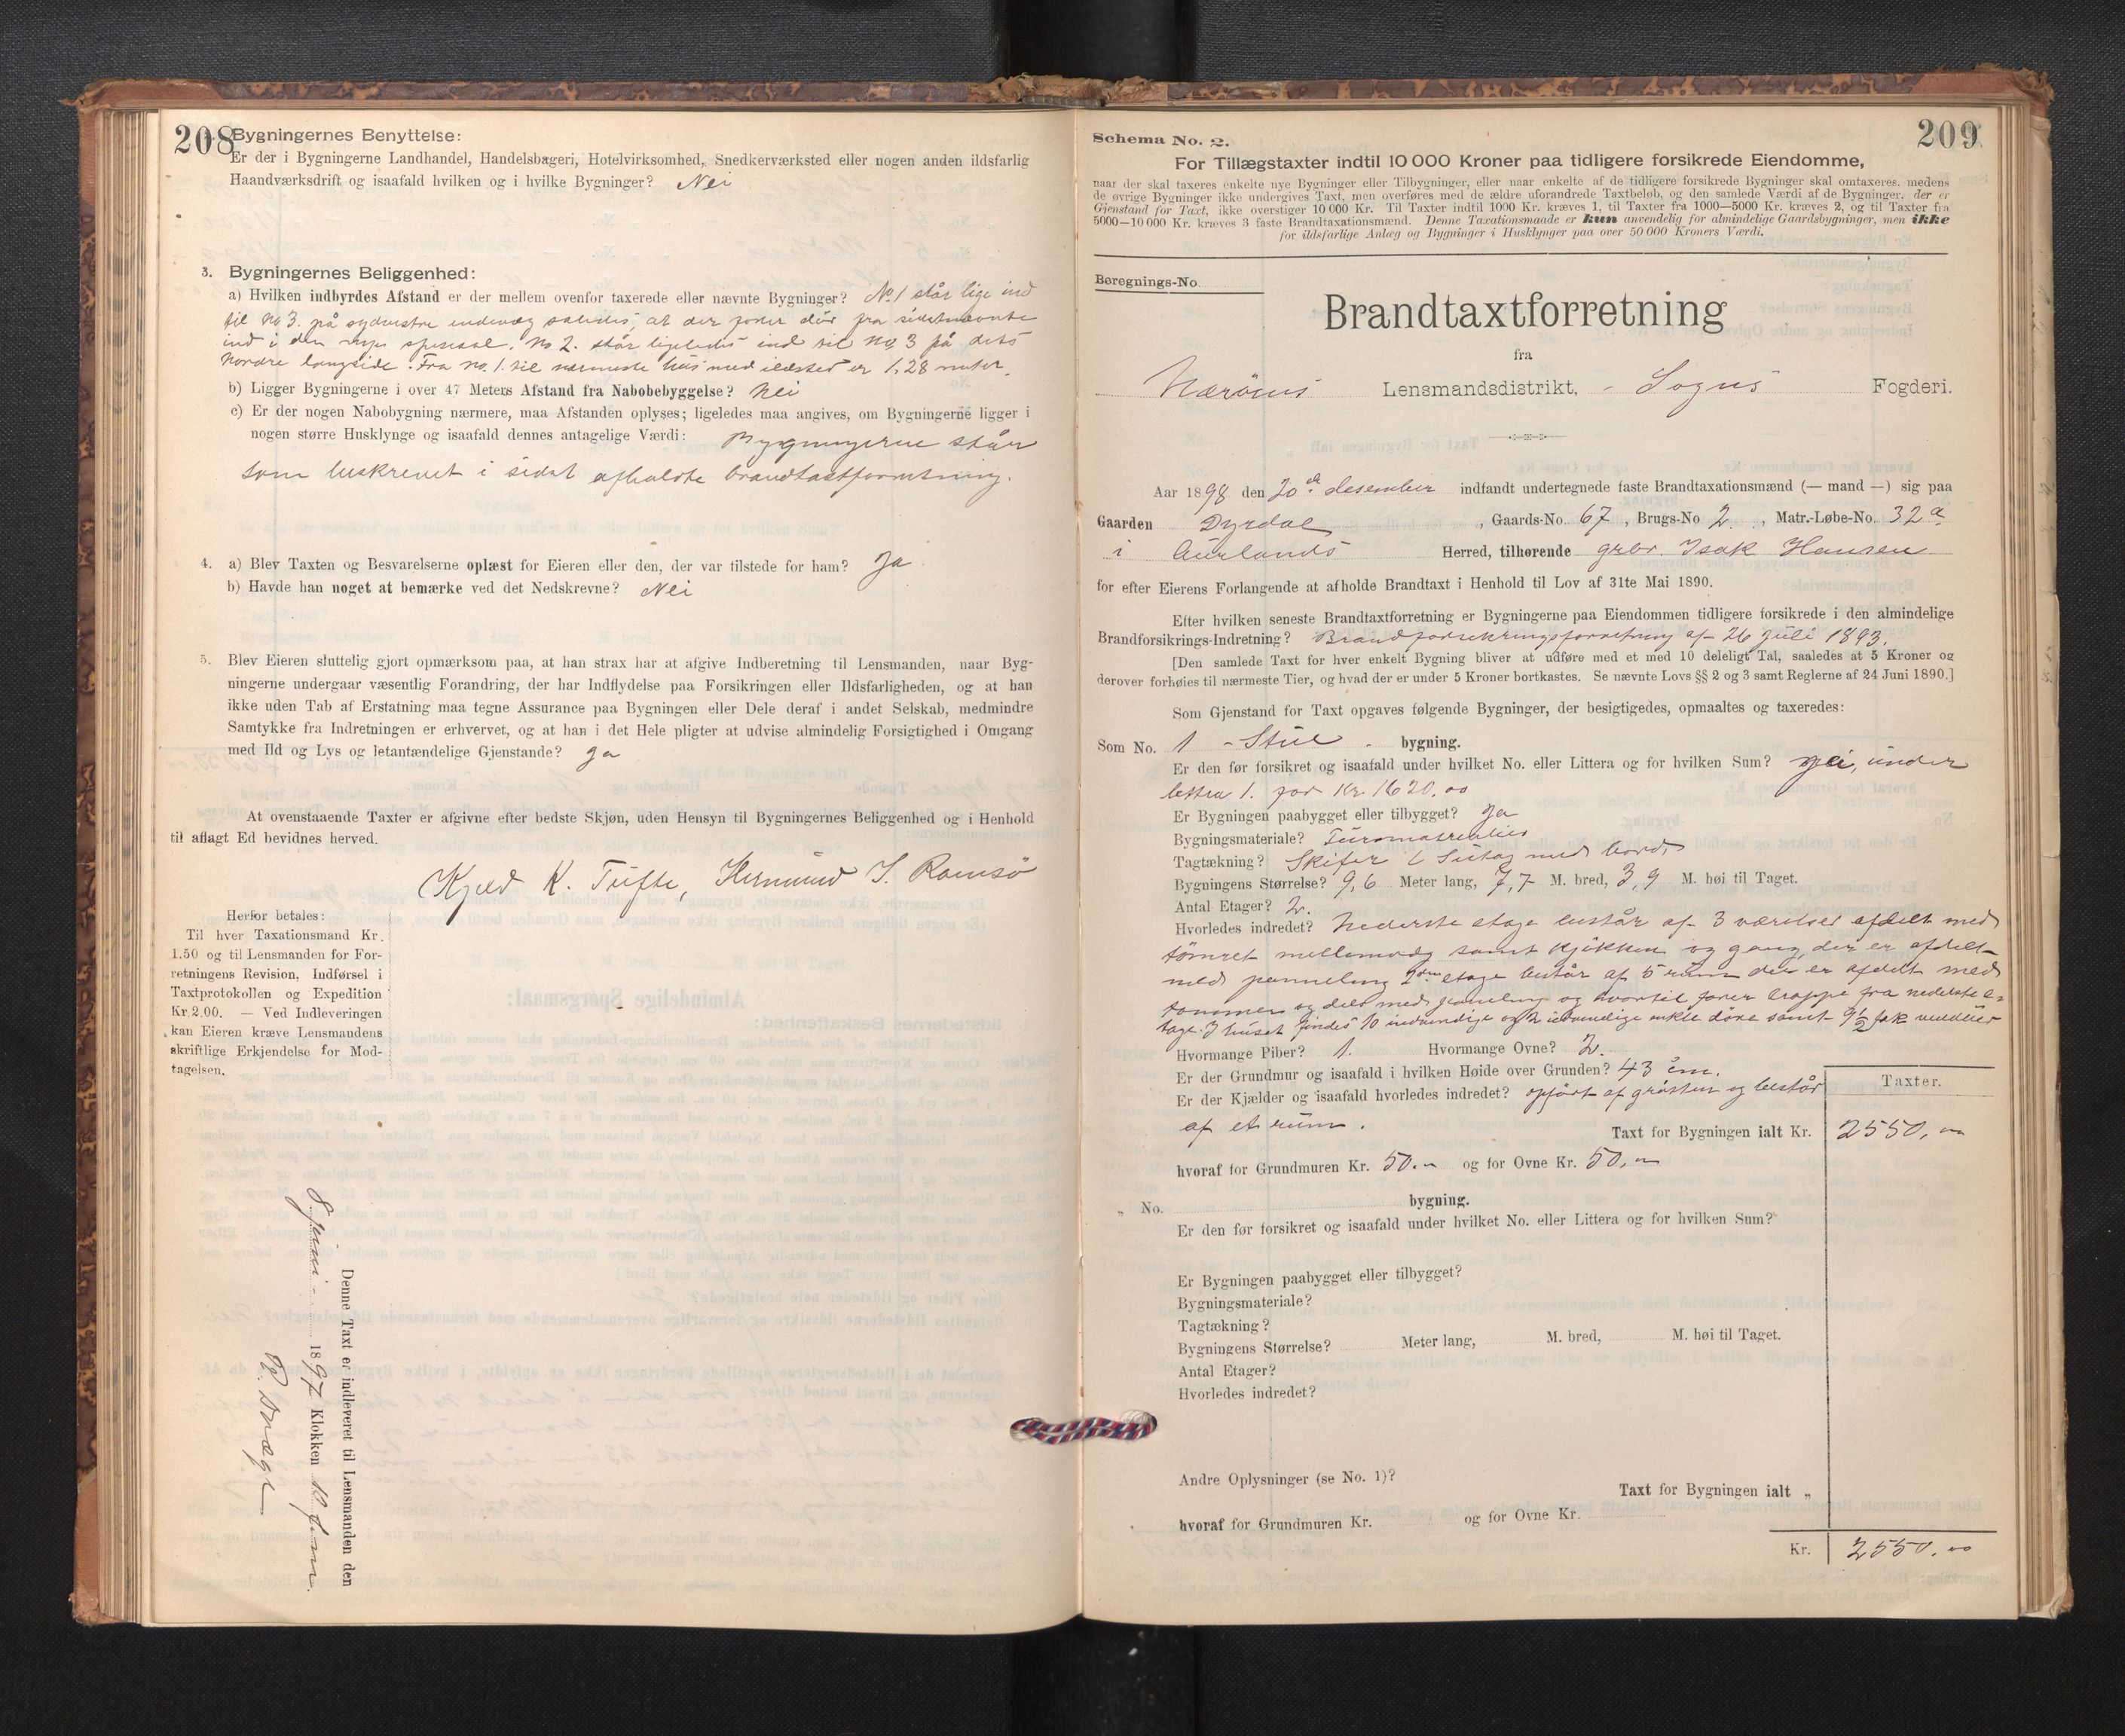 208
Bygningernes Benyttelse:
Er der i Bygningerne Landhandel, Handelsbageri, Hotelvirksomhed, Snedkerværksted eller nogen anden ildsfarlig
Haandværksdrift og isaafald hvilken og i hvilke Bygninger? Nei
3. Bygningernes Beliggenhed:
a) Hvilken indbyrdes Afstand er der mellem ovenfor taxerede eller nævnte Bygninger? No. 1 står lige ind
til No 3. på sydvestre endevæg således, at der fører dör fra sidstnævnte
ind i den. No 2. står ligeledes ind til No 3 på dets
Nordre langside. Fra No. 1. til nærmeste hus med ildsted er 1,28 meter.
b) Ligger Bygningerne i over 47 Meters Afstand fra Nabobebyggelse? Nei
c) Er der nogen Nabobygning nærmere, maa Afstanden oplyses; ligeledes maa angives, om Bygningerne ligger i
nogen større Husklynge og isaafald dennes antagelige Værdi: Bygningerne står
som beskrevet i sidst afholdte brandtaxtforretning.
4. a) Blev Taxten og Besvarelserne oplæst for Eieren eller den, der var tilstede for ham? Ja
b) Havde han noget at bemærke ved det Nedskrevne? Nei
5. Blev Eieren sluttelig gjort opmærksom paa, at han strax har at afgive Indberetning til Lensmanden, naar Byg-
ningerne undergaar væsentlig Forandring, der har Indflydelse paa Forsikringen eller Ildsfarligheden, og at han
ikke uden Tab af Erstatning maa tegne Assurance paa Bygningen eller Dele deraf i andet Selskab, medmindre
Samtykke fra Indretningen er erhvervet, og at han i det Hele pligter at udvise almindelig Forsigtighed i Omgang
med Ild og Lys og letantændelige Gjenstande? Ja
At ovenstaaende Taxter er afgivne efter bedste Skjøn, uden Hensyn til Bygningernes Beliggenhed og i Henhold
til aflagt Ed bevidnes herved.
Kjeld K. Tufte, Hermund I. Ramsö
Herfor betales:
Til hver Taxationsmand Kr.
1.50 og til Lensmanden for For-
retningens Revision, Indførsel i
Taxtprotokollen og Expedition
Kr. 2.00. — Ved Indleveringen
kan Eieren kræve Lensmandens
skriftlige Erkjendelse for Mod-
tagelsen.
Denne Taxt er indleveret til Lensmanden den
8 juni 1897 Klokken 10 fm.
209
Schema No. 2.
For Tillægstaxter indtil 10 000 Kroner paa tidligere forsikrede Eiendomme,
naar der skal taxeres enkelte nye Bygninger eller Tilbygninger, eller naar enkelte af de tidligere forsikrede Bygninger skal omtaxeres, medens
de øvrige Bygninger ikke undergives Taxt, men overføres med de ældre uforandrede Taxtbeløb, og den samlede Værdi af de Bygninger, der er
Gjenstand for Taxt, ikke overstiger 10 000 Kr. Til Taxter indtil 1000 Kr. kræves 1, til Taxter fra 1000—5000 Kr. kræves 2, og til Taxter fra
5000—10 000 Kr. kræves 3 faste Brandtaxationsmænd. Denne Taxationsmaade er kun anvendelig for almindelige Gaardsbygninger, men ikke
for ildsfarlige Anlæg og Bygninger i Husklynger paa over 50 000 Kroners Værdi.
Beregnings-No.
Brandtaxtforretning
fra
Nærøens Lensmandsdistrikt, - Sogns Fogderi.
Aar 1898 den 20de desember indfandt undertegnede faste Brandtaxationsmænd (— mand —) sig paa
Gaarden Dyrdal, Gaards-No. 67, Brugs-No 2, Matr.-Løbe-No. 32a
i Aurlands Herred, tilhørende grbr. Isak Hansen
for efter Eierens Forlangende at afholde Brandtaxt i Henhold til Lov af 31te Mai 1890.
Efter hvilken seneste Brandtaxtforretning er Bygningerne paa Eiendommen tidligere forsikrede i den almindelige
Brandforsikrings-Indretning? Brandforsikringsforretning af 26 Juli 1893.
[Den samlede Taxt for hver enkelt Bygning bliver at udføre med et med 10 deleligt Tal, saaledes at 5 Kroner og
derover forhøies til nærmeste Tier, og hvad der er under 5 Kroner bortkastes. Se nævnte Lovs §§ 2 og 3 samt Reglerne af 24 Juni 1890.]
Som Gjenstand for Taxt opgaves følgende Bygninger, der besigtigedes, opmaaltes og taxeredes:
Som No. 1 - Stue - bygning.
Er den før forsikret og isaafald under hvilket No. eller Littera og for hvilken Sum? ja, under
lettra 1. for Kr. 1620,00
Er Bygningen paabygget eller tilbygget? Ja
Bygningsmateriale? Tömmer
Tagtækning? Skifer med bord.
Bygningens Størrelse? 9,6 Meter lang, 7,7 M. bred, 3,9 M. høi til Taget.
Antal Etager? 2.
Hvorledes indredet? Nederste etage består af 3 værelser afdelt med
tömret mellemvæg samt kjökken og gang, der er afdelt
med panneling 2den etage består af 5 rum der er afdelt med
tömmer og delt med paneling og hvortil förer trappe fra nederste e-
tage. I huset findes 10 indvendige og 2 udvendige enkle döre samt 9½ fak vinduer
Hvormange Piber? 1. Hvormange Ovne? 2.
Er der Grundmur og isaafald i hvilken Høide over Grunden? 43 cm.
Er der Kjælder og isaafald hvorledes indredet? opfört af gråsten og består
af et rum.
Taxter.
Taxt for Bygningen ialt Kr. 2550,00
hvoraf for Grundmuren Kr. 50.- og for Ovne Kr. 50,-
„ No. bygning.
Er den før forsikret og isaafald under hvilket No. eller Littera og for hvilken Sum?
Er Bygningen paabygget eller tilbygget?
Bygningsmateriale?
Tagtækning?
Bygningens Størrelse? Meter lang, M. bred, M. høi til Taget.
Antal Etager?
Hvorledes indredet?
Andre Oplysninger (se No. 1)?
Taxt for Bygningen ialt „
hvoraf for Grundmuren Kr. og for Ovne Kr.
Kr. 2550.00